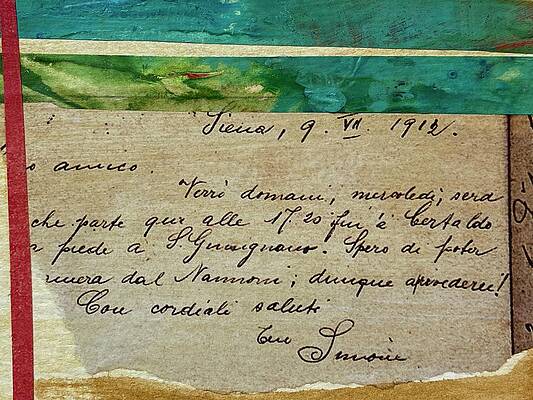 Siena, 9. VII. 1912.
o amico.
Verrò domani, mercoledì, sera
che parte qui alle 17.20 fin'à Certaldo
piede à S. Gimignano. Spero di poter
dal Nannoni; dunque arivederci!
Con cordiali saluti
tuo
Simoni